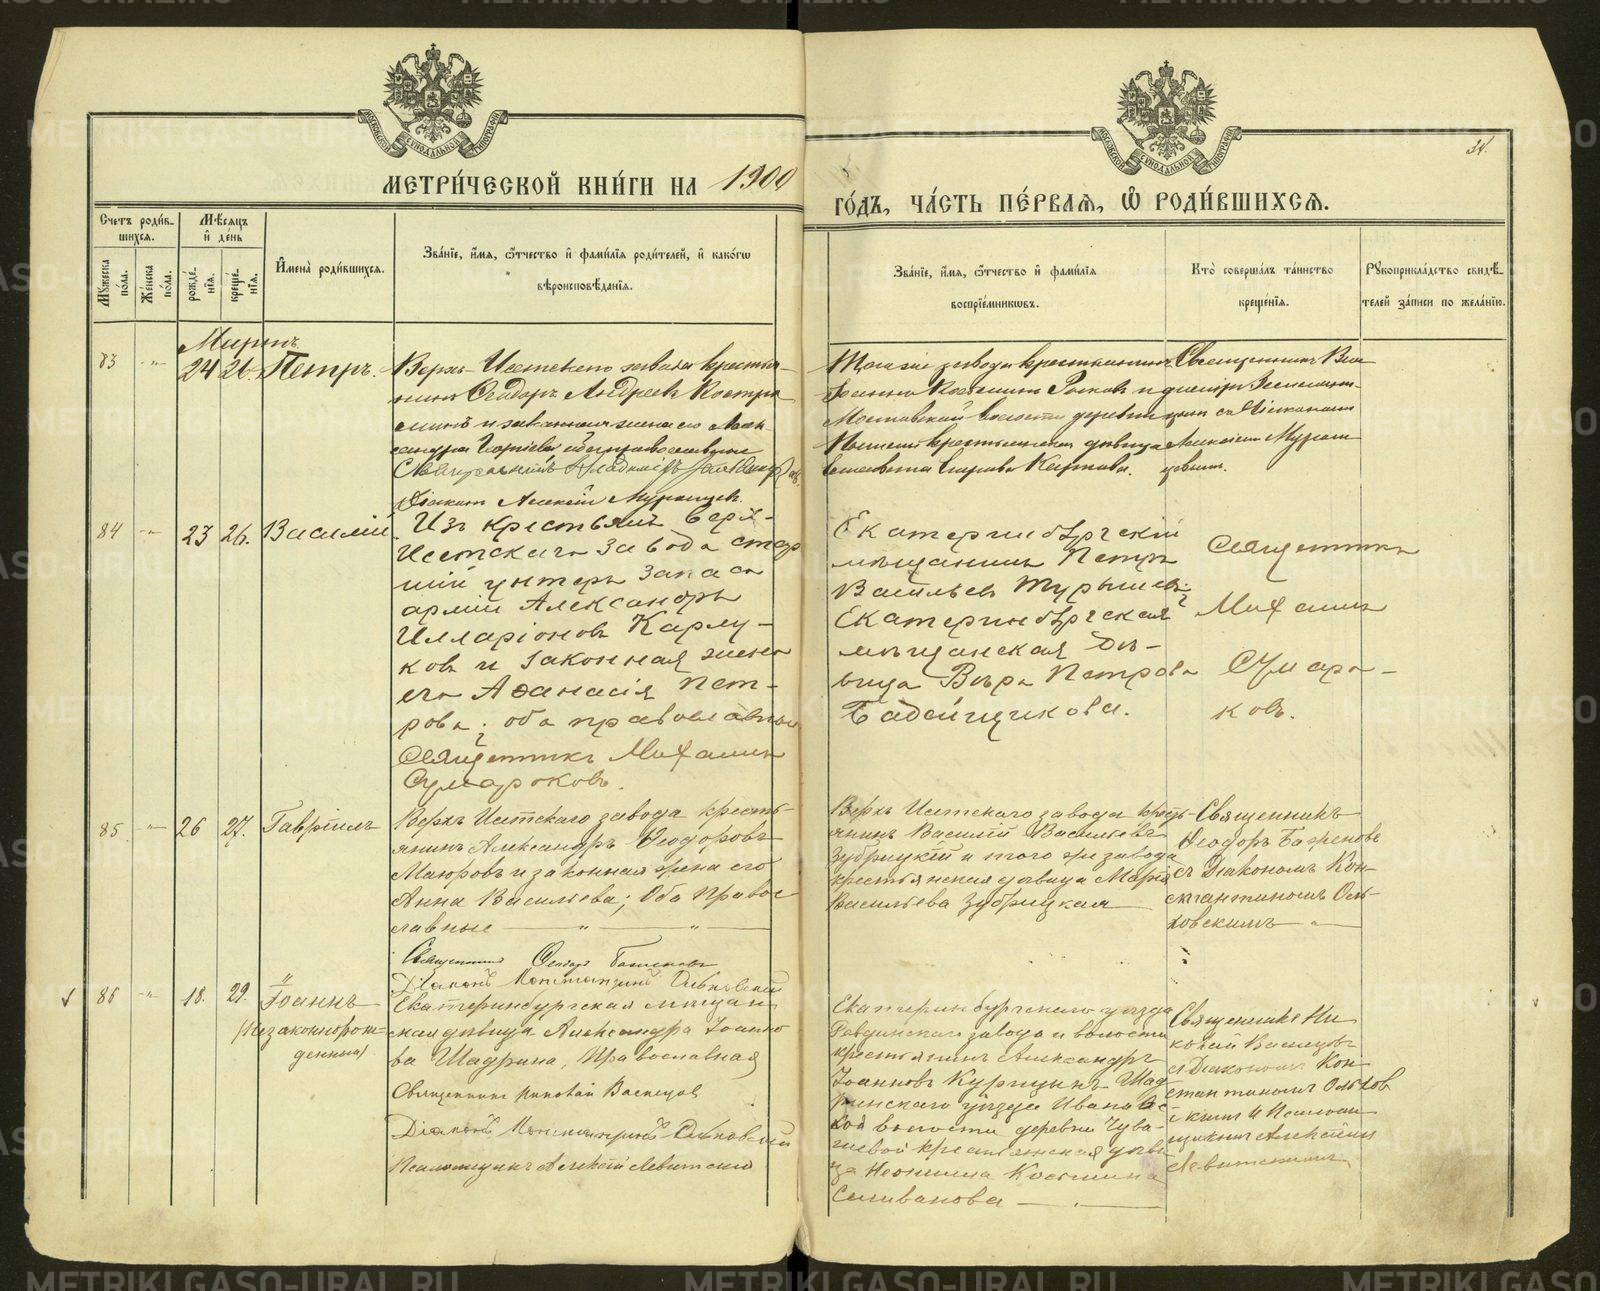 34.
МЕТРИ́ЧЕСКОЙ КНИ́ГИ НА 1900
ГО́ДЪ, ЧА́СТЬ ПЕ́РВАЯ, Ѽ РОДИ́ВШИХСЯ.
Счетъ роди́в-
шихся.
Мѣ́сяцъ
и҆ де́нь
Мꙋ́жеска по́ла.
Же́нска по́ла.
рожде́нїя.
креще́нїя.
И҆мена̀ роди́вшихся.
Зва́нїе, и҆́мя, ѻ҆́тчество и҆ фами́лїя роди́телей, и҆ како́гѡ
вѣроисповѣ́данїя.
Зва́нїе, и҆́мя, ѻ҆́тчество и҆ фами́лїя
воспрїе́мникѡвъ.
Кто̀ соверша́лъ та́инство
креще́нїя.
Рꙋкоприкла́дство свидѣ́-
телей за́писи по жела́нїю.
Мартъ
83 " 24 26 Петръ.
Верхъ-Исетскаго завода крестья-
нинъ Ѳеодоръ Андреевъ Костро
минъ и законная жена его Алек
сандра оба православные
Священникъ Владиміръ
Діаконъ Алексій Мурашевъ.
Тогоже завода крестьянинъ
и
волости деревни
крестьянская дѣвица
Елисавета Карпова.
Священникъ Вла
диміръ
съ Діакономъ
Алексіемъ Мураш
84 " 23 26. Василій
Изъ крестьянъ Верх-
Исетскаго завода стар
шій унтеръ запаса
арміи Александръ
Илларіоновъ Карлу-
ковъ и законная жена
его Аѳанасія Пет-
рова; оба православные
Священникъ Михаилъ
Сумароковъ.
Екатеринбургскій
мѣщанинъ Петръ
Васильевъ Турышев;
Екатеринбургская
мѣщанская дѣ-
вица Вѣра Петрова
Бадейщикова.
Священникъ
Михаилъ
Сумаро-
ковъ.
85 " 26 27. Гавріилъ
Верхъ Исетскаго завода кресть-
янинъ Александръ Ѳеодоровъ
Маюровъ и законная жена его
Анна Васильева; Оба Правос-
лавные — " — " —
Священникъ Ѳеодоръ Баженовъ
Діаконъ Константинъ Ольховскій
Верхъ Исетскаго завода кресть-
янинъ Василій Васильевъ
Зубрицкій и того же завода
крестьянская дѣвица Марія
Васильева Зубрицкая
Священникъ
Ѳеодоръ Баженовъ
съ Діакономъ Кон-
стантиномъ Оль-
ховскимъ — "
86 " 18. 29. Іоаннъ
(незаконнорож-
денный)
Екатеринбургская мѣщан
ская дѣвица Александра Іоанно
ва Шадрина, Православная
Священникъ Николай Васнецовъ
Діаконъ Константинъ Ольховскій
Псаломщикъ Алексій Левитскій
Екатеринбургскаго уѣзда
Ревдинскаго завода и волости
крестьянинъ Александръ
Іоанновъ Курицынъ Шад
ринскаго уѣзда Иванов
кой волости деревни Чува-
шевой крестьянская дѣви
ца Неонила Космина
Селиванова
Священникъ Ни
колай Васнецовъ
съ Діакономъ Кон
стантиномъ Ольхов
скимъ и Псалом
щикомъ Алексіемъ
Левитскимъ
METRIKI.GASO-URAL.RU